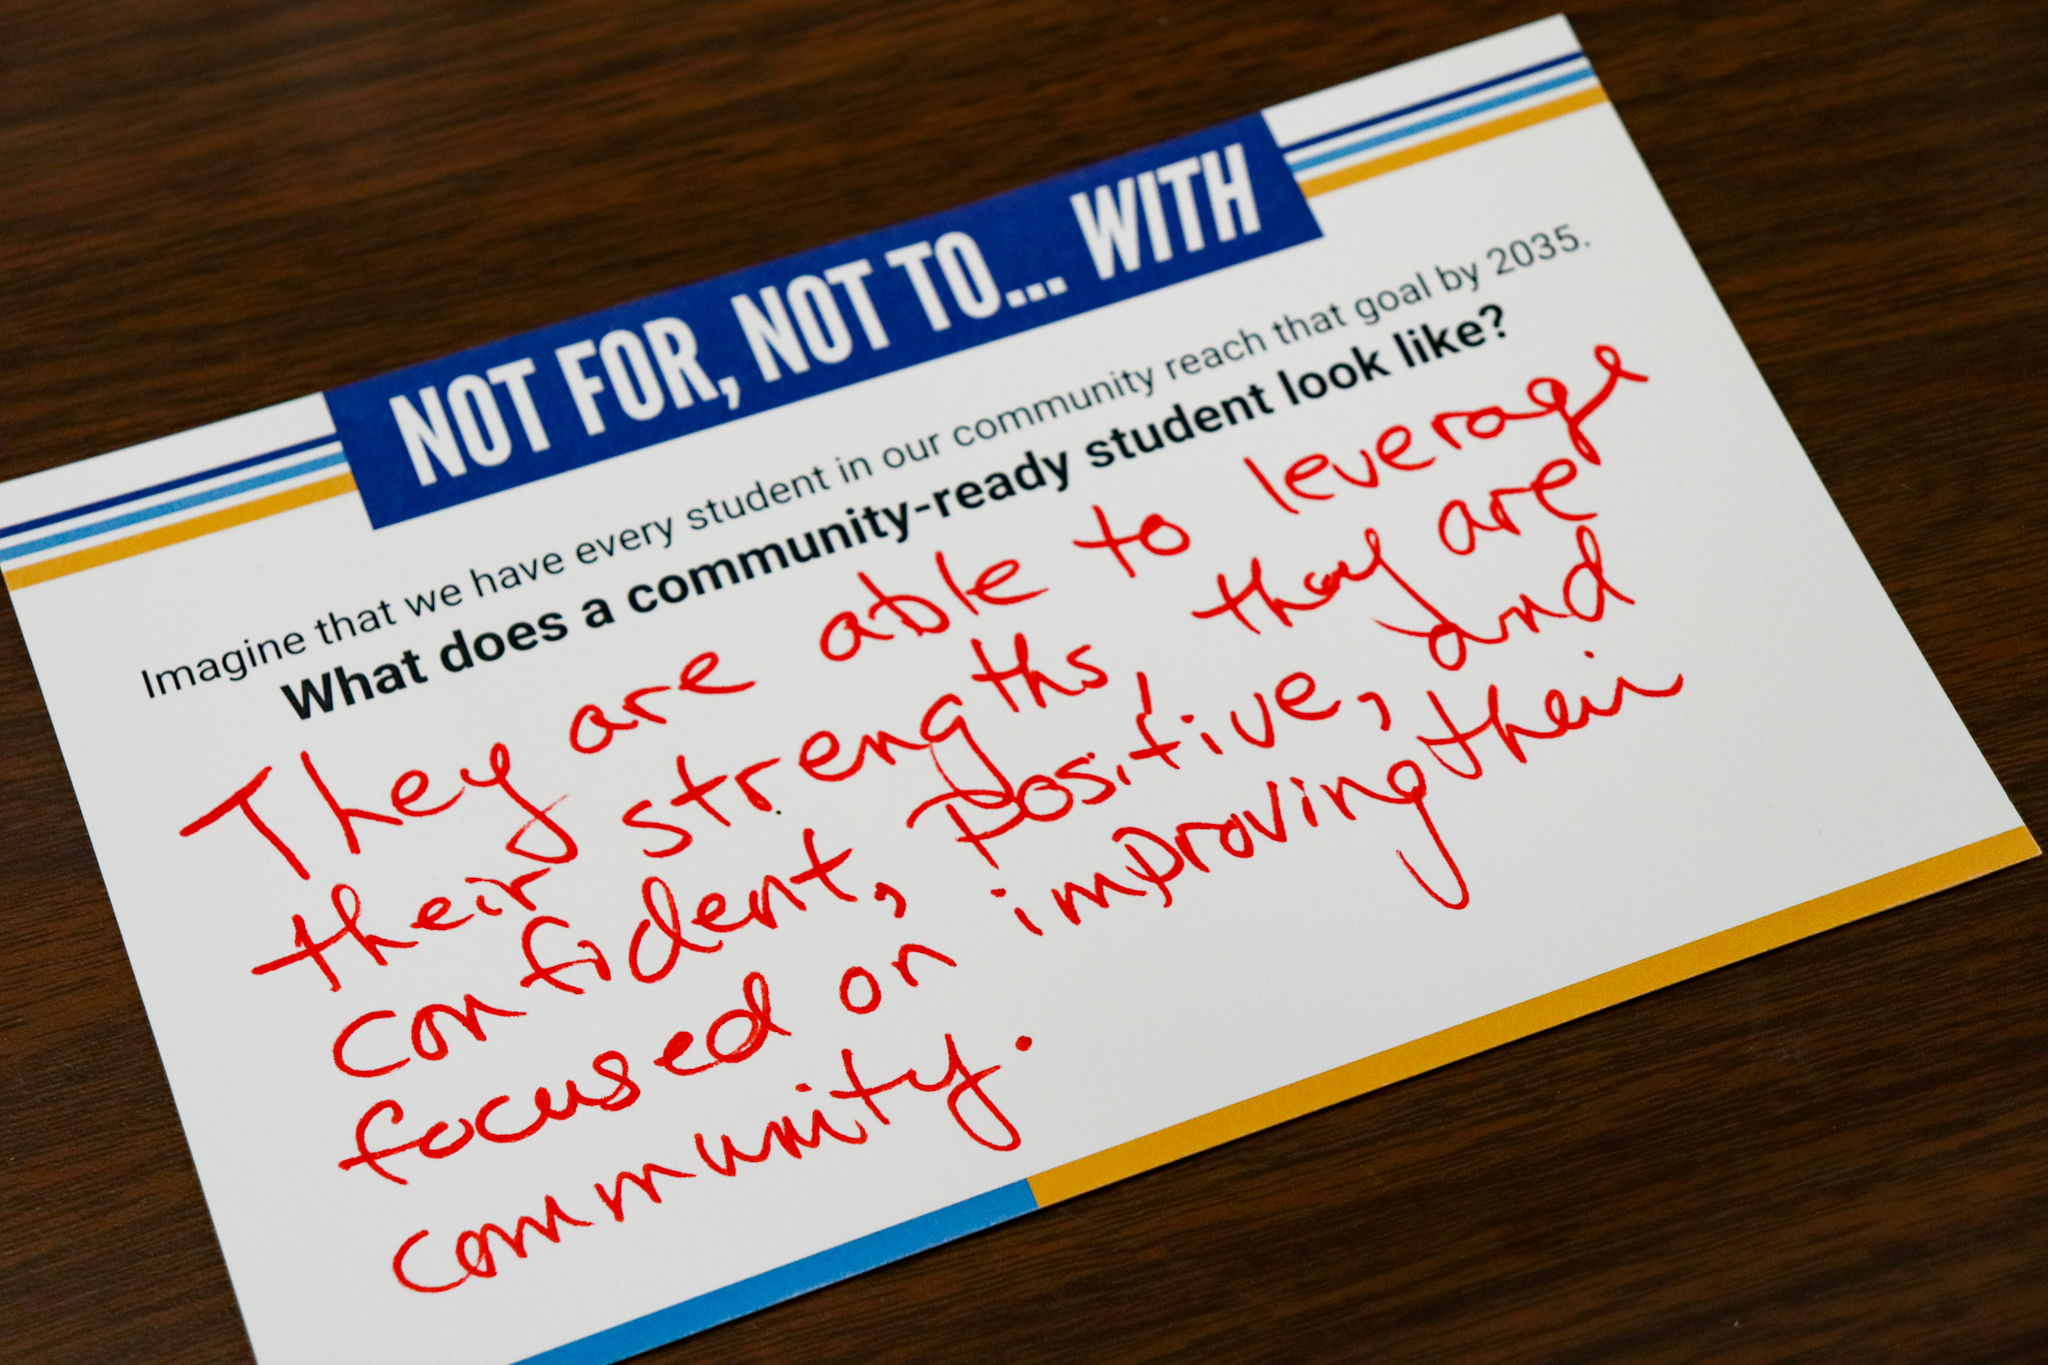 NOT FOR, NOT TO... WITH
Imagine that we have every student in our community reach that goal by 2035.
What does a community-ready student look like?
They are able to leverage
their strengths, they are
confident, positive, and
focused on improving their
community.